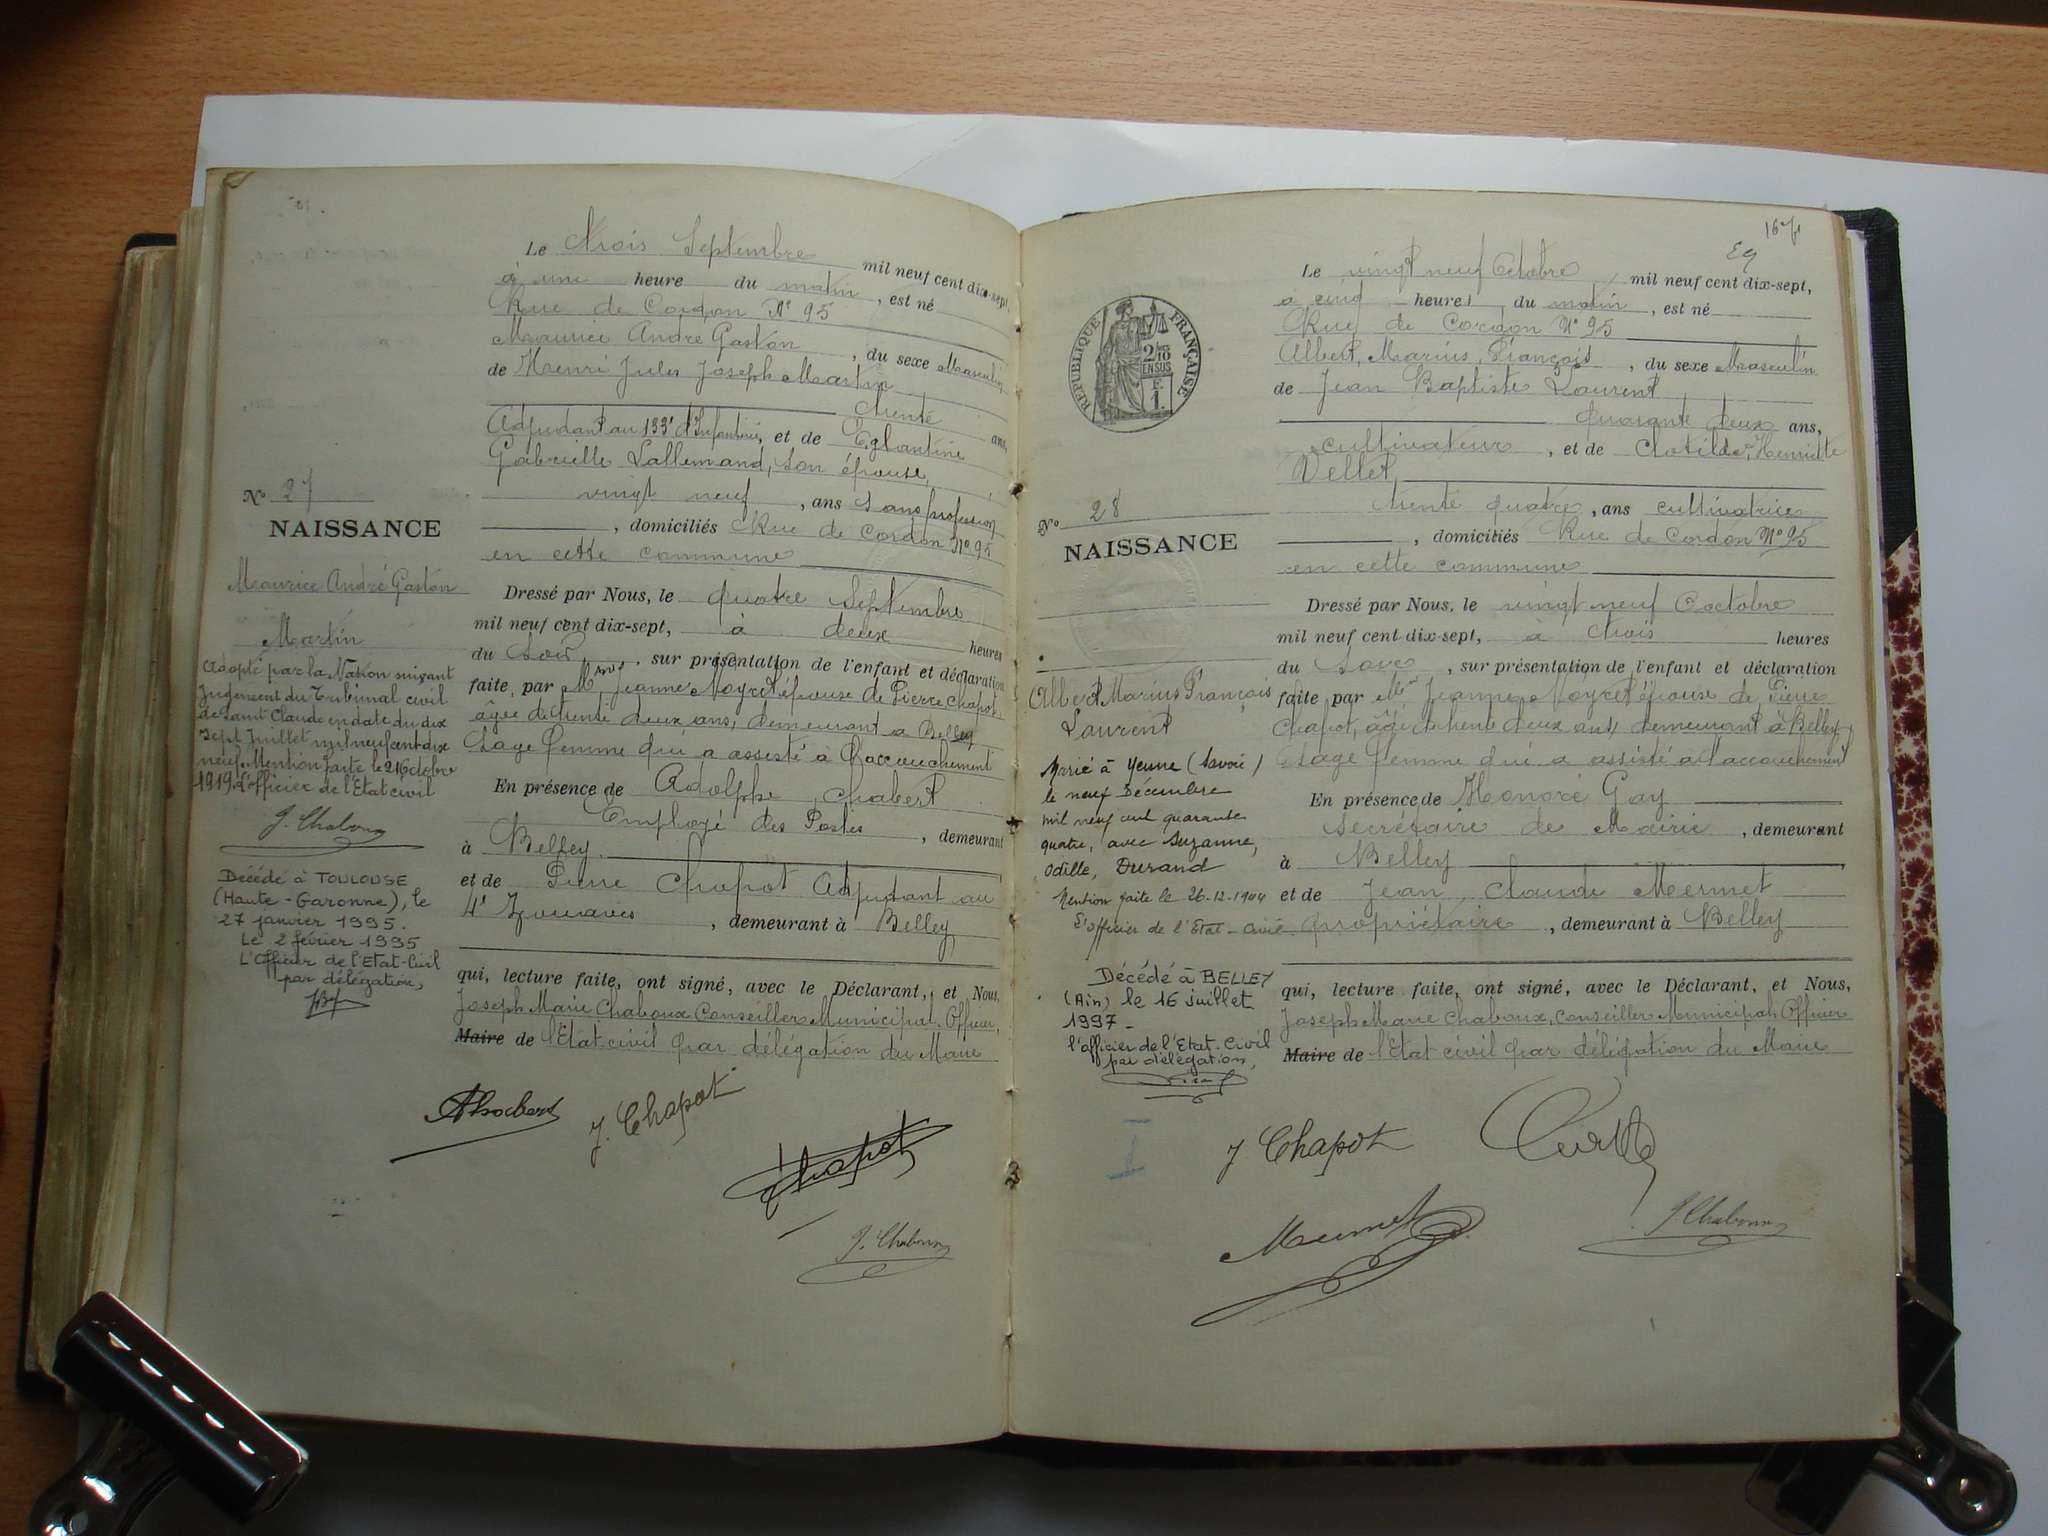 Le trois Septembre mil neuf cent dix-sept,
à une heure du matin, est né
Rue de Cordon N° 95
Maurice André Gaston, du sexe Masculin
de Henri Jules Joseph Martin
trente ans,
Adjudant au 133e d'Infanterie, et de Eglantine
Gabrielle Lallemand, son épouse,
vingt neuf, ans Sans profession
, domiciliés Rue de Cordon N° 95
en cette commune
N° 27
NAISSANCE
Maurice André Gaston
Martin
Adopté par la Nation suivant
jugement du Tribunal civil
de Saint Claude en date du dix
Sept Juillet mil neuf cent dix
neuf. Mention faite le 21 Octobre
1919. L'officier de l'Etat civil
J. Chaboux
Décédé à TOULOUSE
(Haute-Garonne), le
27 janvier 1995.
Le 2 février 1995
L'Officier de l'Etat-Civil
par délégation,
Dressé par Nous, le quatre Septembre
mil neuf cent dix-sept, à deux heures
du Soir, sur présentation de l'enfant et déclaration
faite, par Jeanne Noyret épouse de Pierre Chapot,
âgée de trente deux ans, demeurant à Belley
Sage femme qui a assisté à l'accouchement
En présence de Adolphe Chabert
Employé des Postes, demeurant
à Belley
et de Pierre Chapot Adjudant au
4e Zouaves, demeurant à Belley
qui, lecture faite, ont signé, avec le Déclarant, et Nous,
Joseph Marie Chaboux Conseiller Municipal, Officier
Maire de l'Etat civil par délégation du Maire
AChabert
J. Chapot
Chapot
J. Chaboux
167
Le vingt neuf Octobre mil neuf cent dix-sept,
à cinq heures du matin, est né
Rue de Cordon N° 95
Albert, Marius, François, du sexe Masculin
de Jean Baptiste Laurent
quarante deux ans,
cultivateur, et de Clotilde, Henriette
Vellet
trente quatre, ans cultivatrice
, domiciliés Rue de Cordon N° 95
en cette commune
RÉPUBLIQUE FRANÇAISE
2/10
EN SUS
F.
1.
N° 28
NAISSANCE
Albert Marius François
Laurent
Marié à Yenne (Savoie)
le neuf Décembre
mil neuf cent quarante
quatre, avec Suzanne,
Odille, Durand
Mention faite le 26-12-1944
L'officier de l'Etat-civil
Décédé à BELLEY
(Ain) le 16 juillet
1997-
l'officier de l'Etat-Civil
par délégation,
Dressé par Nous, le vingt neuf Octobre
mil neuf cent dix-sept, à trois heures
du Soir, sur présentation de l'enfant et déclaration
faite par Jeanne Noyret épouse de Pierre
Chapot, âgée de trente deux ans, demeurant à Belley
Sage femme qui a assisté à l'accouchement
En présence de Honoré Gay
Secrétaire de Mairie, demeurant
à Belley
et de Jean Claude Mermet
propriétaire, demeurant à Belley
qui, lecture faite, ont signé, avec le Déclarant, et Nous,
Joseph Marie Chaboux, Conseiller Municipal, Officier
Maire de l'Etat civil par délégation du Maire
J Chapot
Mermet
J. Chaboux